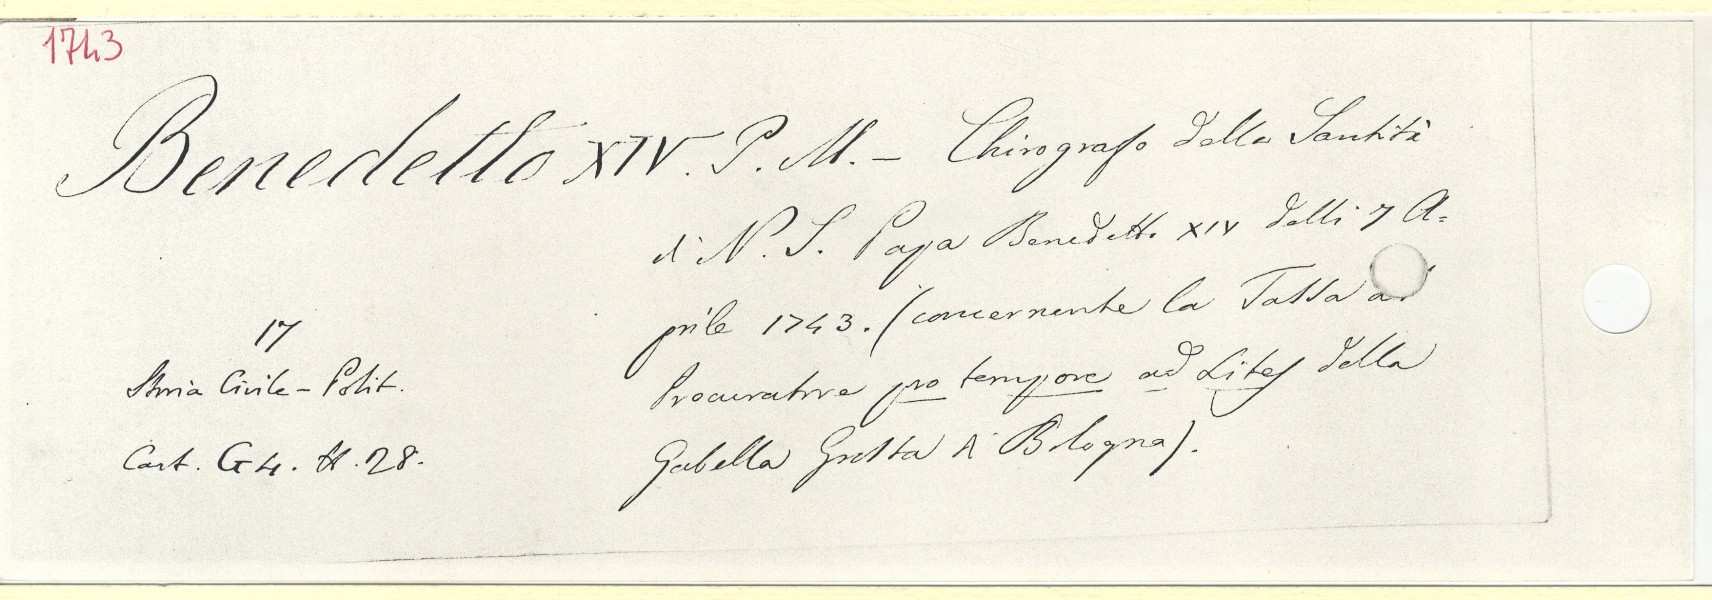 1743
Benedetto XIV. P. M. - Chirografo della Santità
di N. S. Papa Benedetto XIV delli 7 A=
prile 1743. (concernente la Tassa al
Procuratore pro tempore ad Lites della
Gabella Grossa di Bologna).
17
Storia Civile - Polit.
Cart. G4. N. 28.